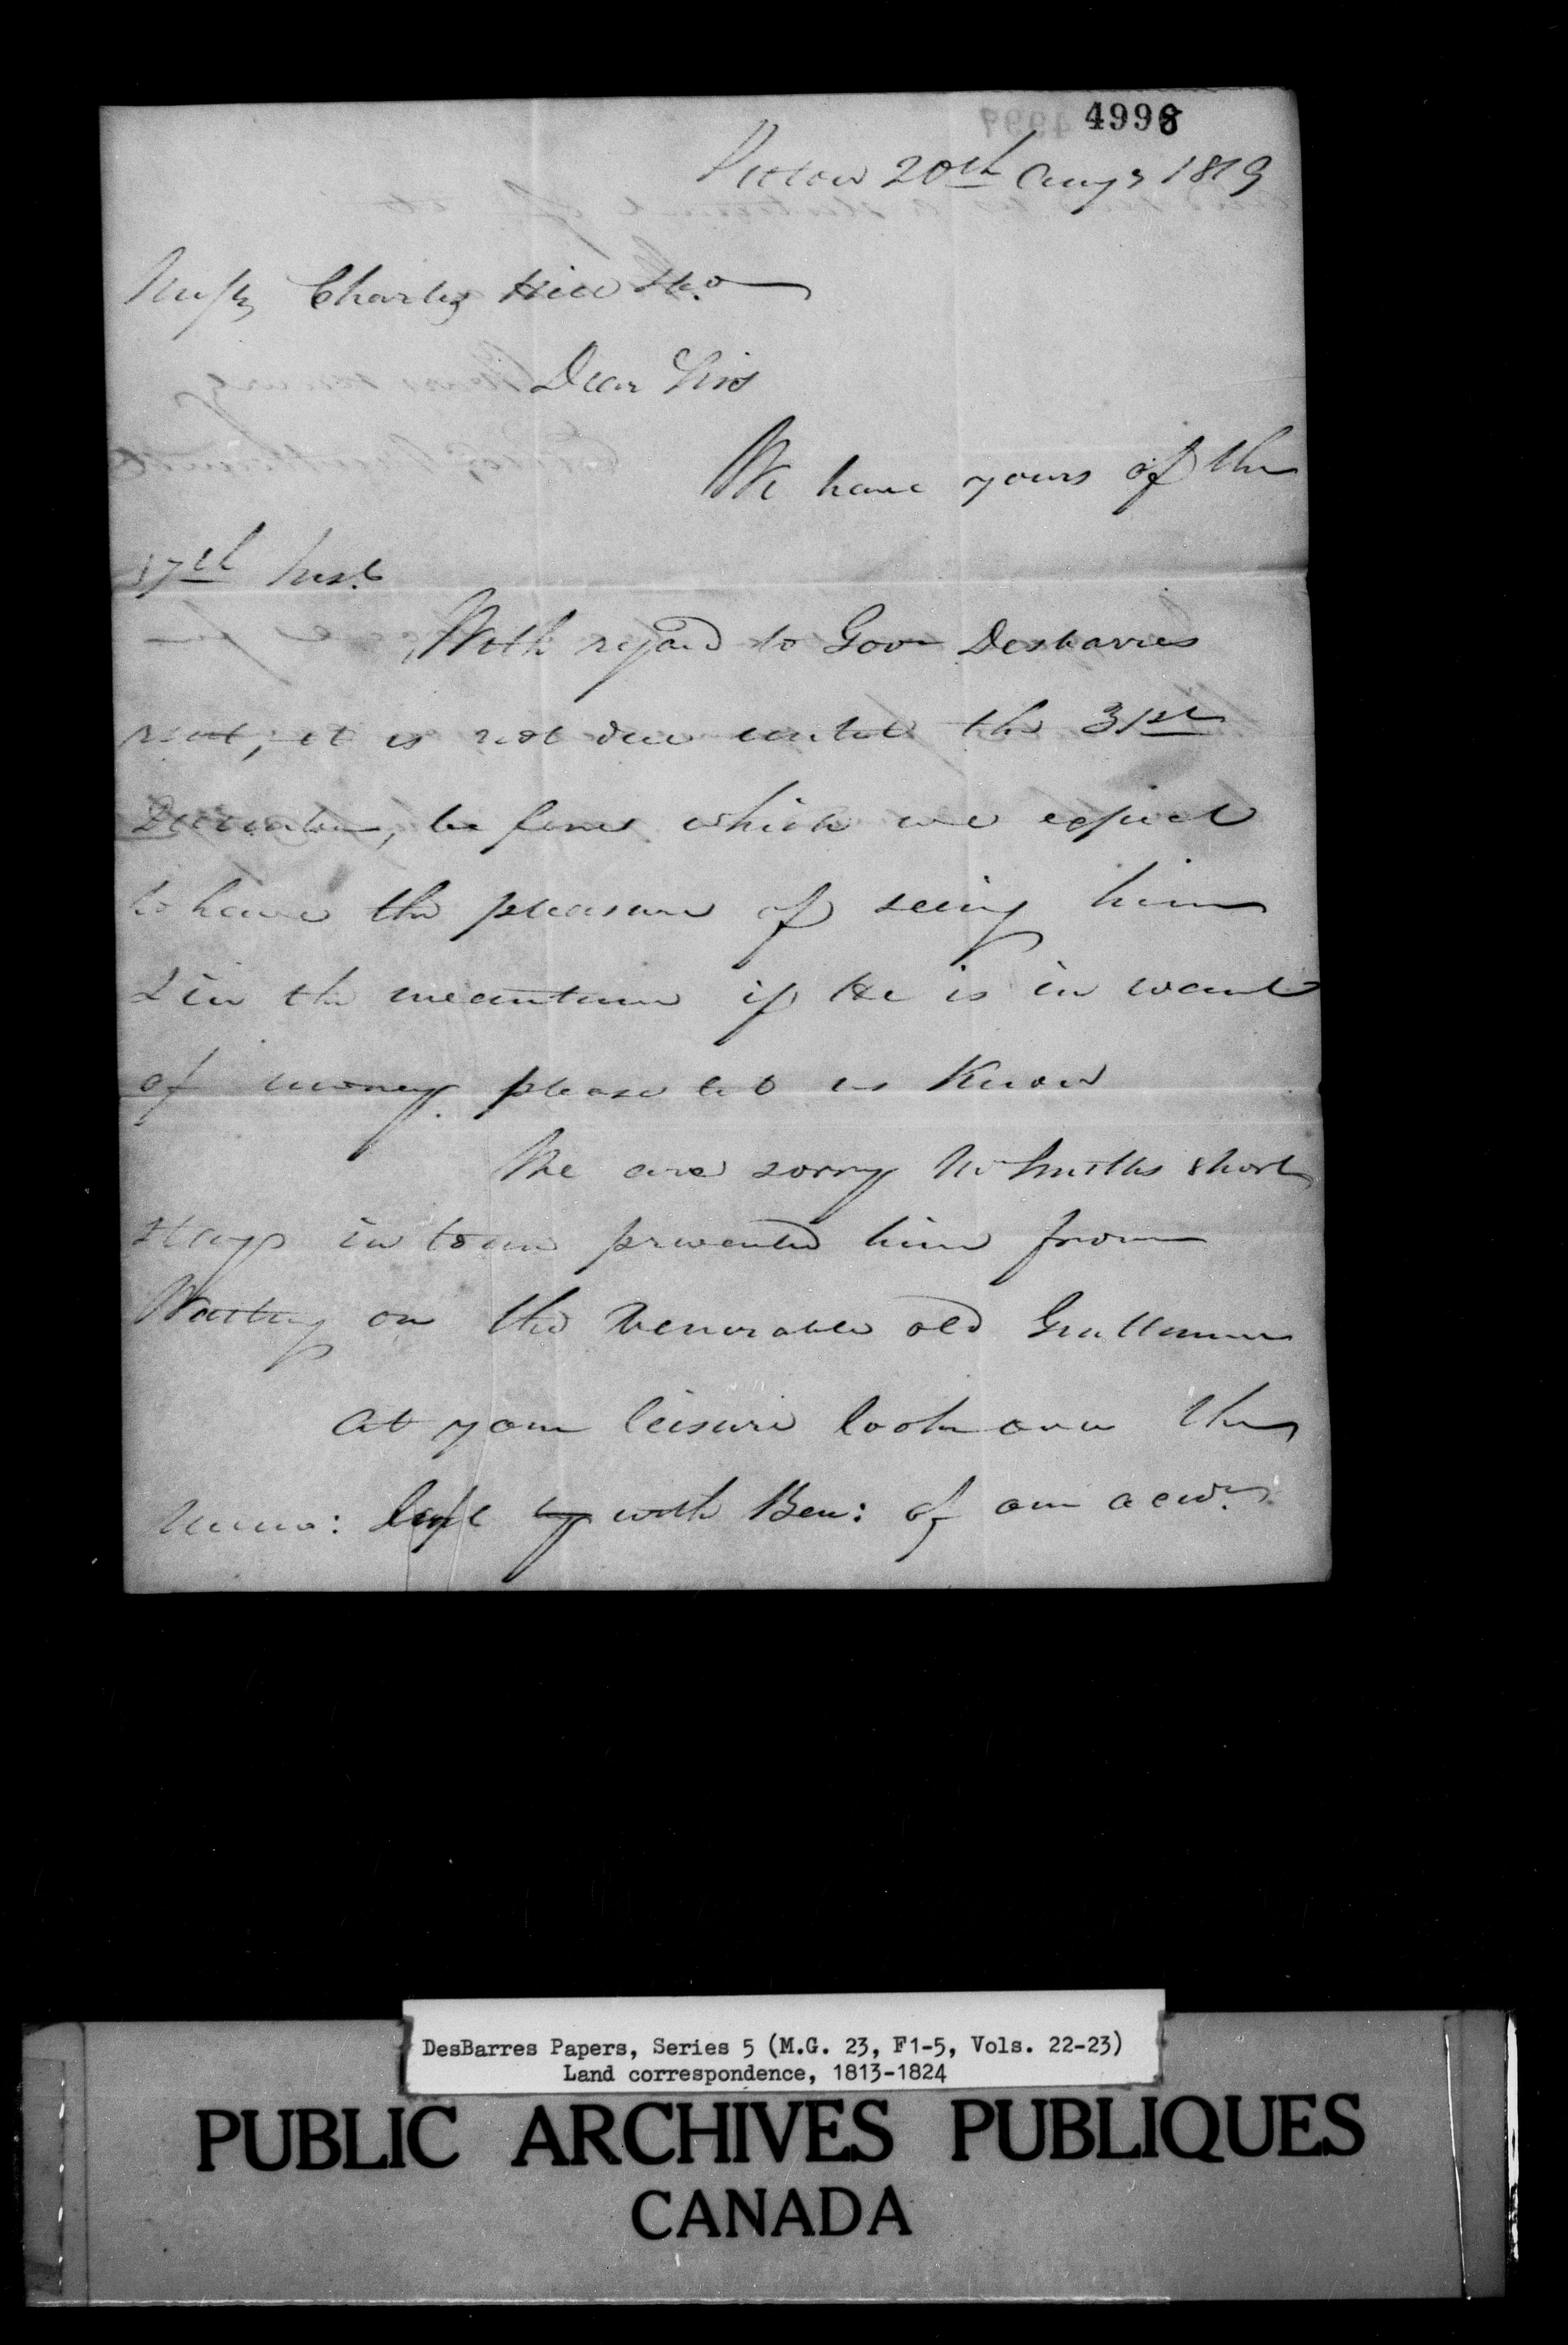 4998
Pictou 20th Augt 1819
Messrs Charles Hill & Co
Dear Sirs
We have yours of the
17th Inst.
With regard to Govr Desbarres
rent, it is not due until the 31st
December, before which we expect
to have the pleasure of seeing him
& in the meantime if He is in want
of money please let us Know
We are sorry Mr Smiths short
stay in town prevented him from
Waiting on the Venerable old Gentleman
at your leisure look over the
Memo: left by with Ben: of our acco.
DesBarres Papers, Series 5 (M.G. 23, F1-5, Vols. 22-23)
Land correspondence, 1813-1824
PUBLIC ARCHIVES PUBLIQUES
CANADA